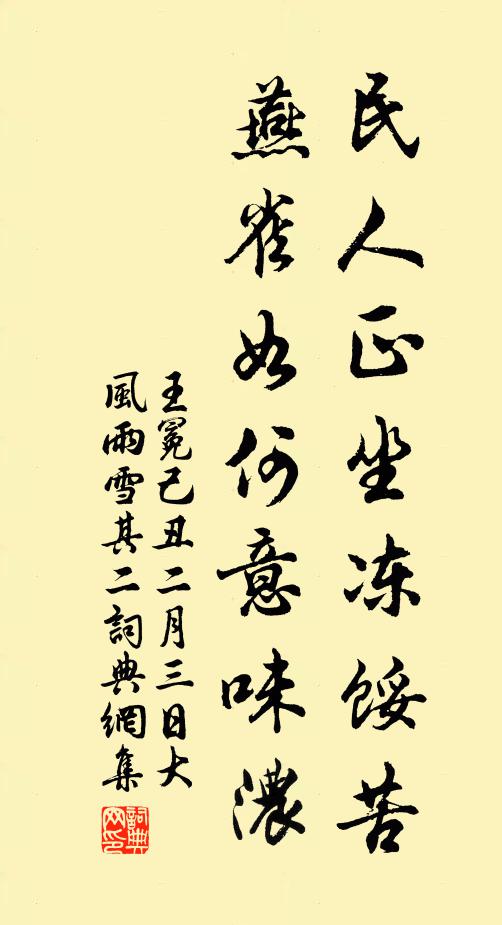 民人正坐冻馁苦
燕雀如何意味濃
王冕己丑二月三日大
風雨雪其二詞典網集
詞典
网印